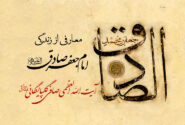 معارفی از زندگی
امام جعفر صادق
آیت الله العظمی صافی گلپایگانی
جعفر بن محمد
الصادق